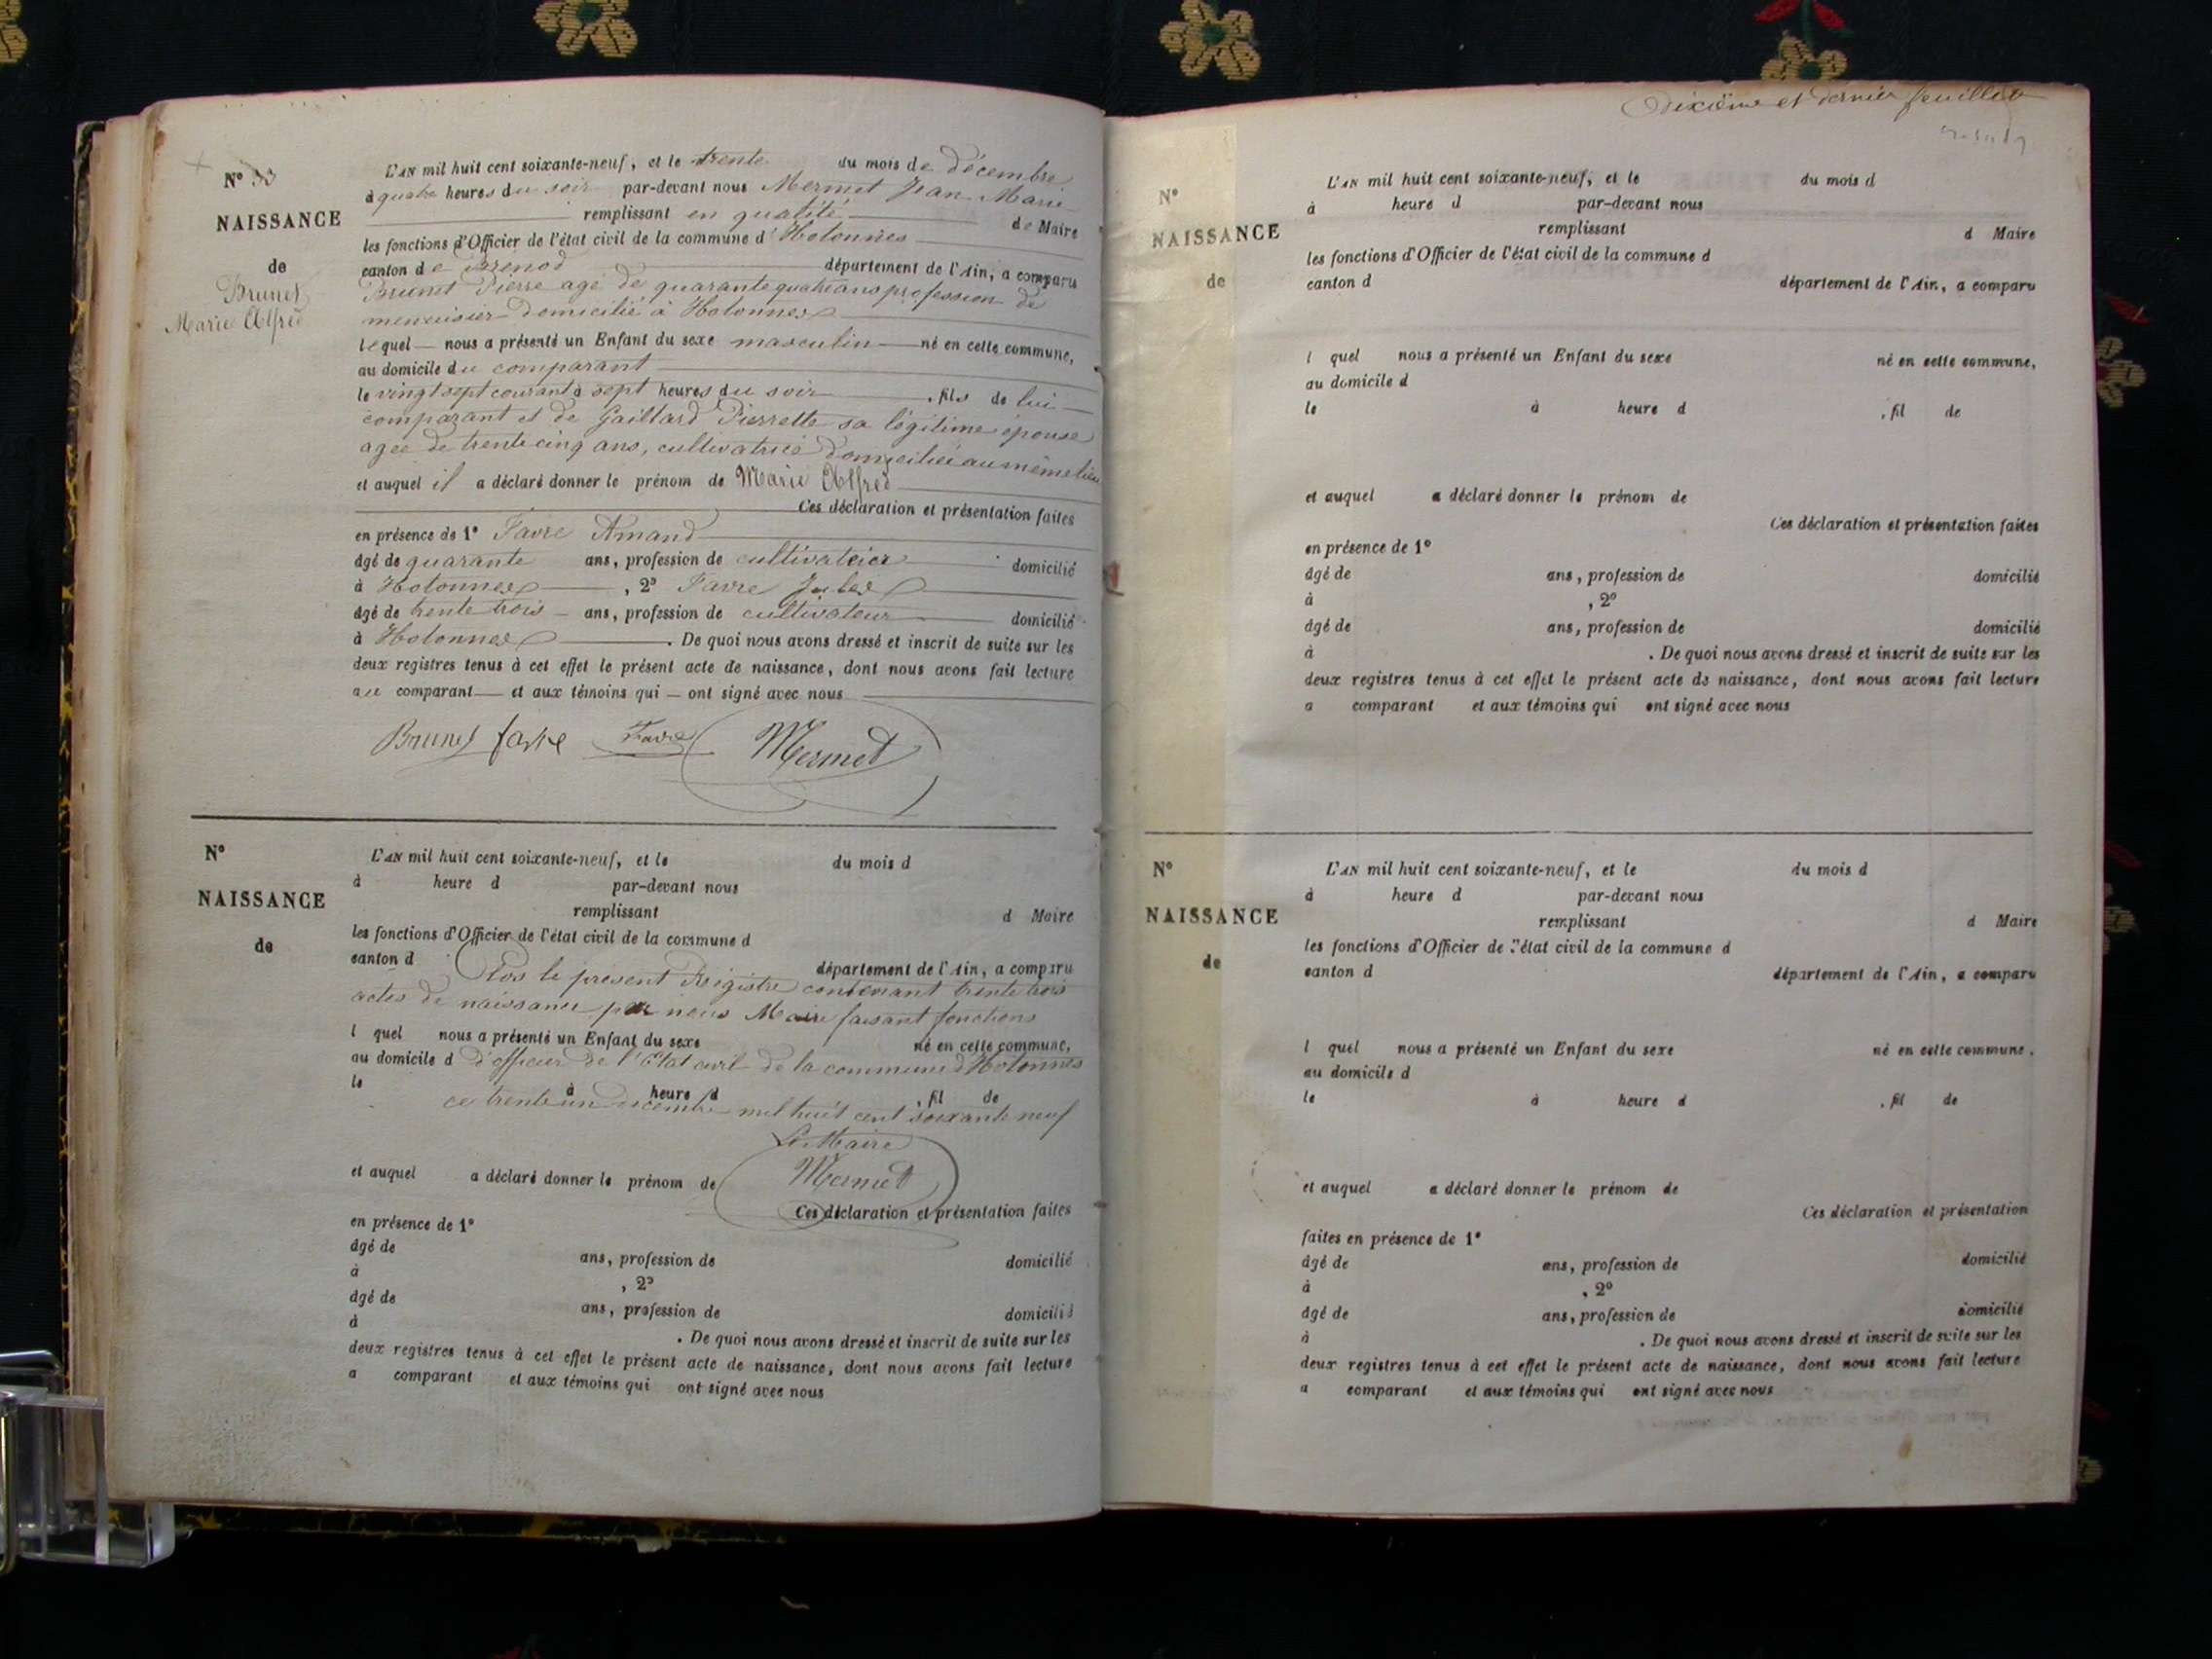 N° 33
NAISSANCE
de
Brunet
Marie Alfred
L'AN mil huit cent soixante-neuf, et le trente du mois de décembre
à quatre heures du soir par-devant nous Mermet Jean Marie
remplissant en qualité de Maire
les fonctions d'Officier de l'état civil de la commune d'Hotonnes
canton de Brenod département de l'Ain, a comparu
Brunet Pierre agé de quarante quatre ans profession de
menuisier domicilié à Hotonnes
lequel nous a présenté un Enfant du sexe masculin né en cette commune,
au domicile du comparant
le vingt sept courant à sept heures du soir , fils de lui
comparant et de Gaillard Pierrette sa légitime épouse
agée de trente cinq ans, cultivatrice domiciliée au même lieu
et auquel il a déclaré donner le prénom de Marie Alfred
Ces déclaration et présentation faites
en présence de 1° Favre Amand
âgé de quarante ans, profession de cultivateur domicilié
à Hotonnes , 2° Favre Jules
âgé de trente trois ans, profession de cultivateur domicilié
à Hotonnes . De quoi nous avons dressé et inscrit de suite sur les
deux registres tenus à cet effet le présent acte de naissance, dont nous avons fait lecture
au comparant et aux témoins qui ont signé avec nous
Brunet Favre Favre Mermet
N°
NAISSANCE
de
L'AN mil huit cent soixante-neuf, et le du mois d
à heure d par-devant nous
remplissant d Maire
les fonctions d'Officier de l'état civil de la commune d
canton d département de l'Ain, a comparu
Clos le présent Régistre contenant trente trois
actes de naissance par nous Maire faisant fonctions
l quel nous a présenté un Enfant du sexe né en cette commune,
au domicile d
d'officier de l'Etat civil de la commune d'Hotonnes
le à heure d , fil de
ce trente un décembre mil huit cent soixante neuf
Le Maire
Mermet
et auquel a déclaré donner le prénom de
Ces déclaration et présentation faites
en présence de 1°
âgé de ans, profession de domicilié
à , 2°
âgé de ans, profession de domicilié
à . De quoi nous avons dressé et inscrit de suite sur les
deux registres tenus à cet effet le présent acte de naissance, dont nous avons fait lecture
a comparant et aux témoins qui ont signé avec nous
Dixième et dernier feuillet
N°
NAISSANCE
de
L'AN mil huit cent soixante-neuf, et le du mois d
à heure d par-devant nous
remplissant d Maire
les fonctions d'Officier de l'état civil de la commune d
canton d département de l'Ain, a comparu
l quel nous a présenté un Enfant du sexe né en cette commune,
au domicile d
le à heure d , fil de
et auquel a déclaré donner le prénom de
Ces déclaration et présentation faites
en présence de 1°
âgé de ans, profession de domicilié
à , 2°
âgé de ans, profession de domicilié
à . De quoi nous avons dressé et inscrit de suite sur les
deux registres tenus à cet effet le présent acte de naissance, dont nous avons fait lecture
a comparant et aux témoins qui ont signé avec nous
N°
NAISSANCE
de
L'AN mil huit cent soixante-neuf, et le du mois d
à heure d par-devant nous
remplissant d Maire
les fonctions d'Officier de l'état civil de la commune d
canton d département de l'Ain, a comparu
l quel nous a présenté un Enfant du sexe né en cette commune,
au domicile d
le à heure d , fil de
et auquel a déclaré donner le prénom de
Ces déclaration et présentation
faites en présence de 1°
âgé de ans, profession de domicilié
à , 2°
âgé de ans, profession de domicilié
à . De quoi nous avons dressé et inscrit de suite sur les
deux registres tenus à cet effet le présent acte de naissance, dont nous avons fait lecture
a comparant et aux témoins qui ont signé avec nous